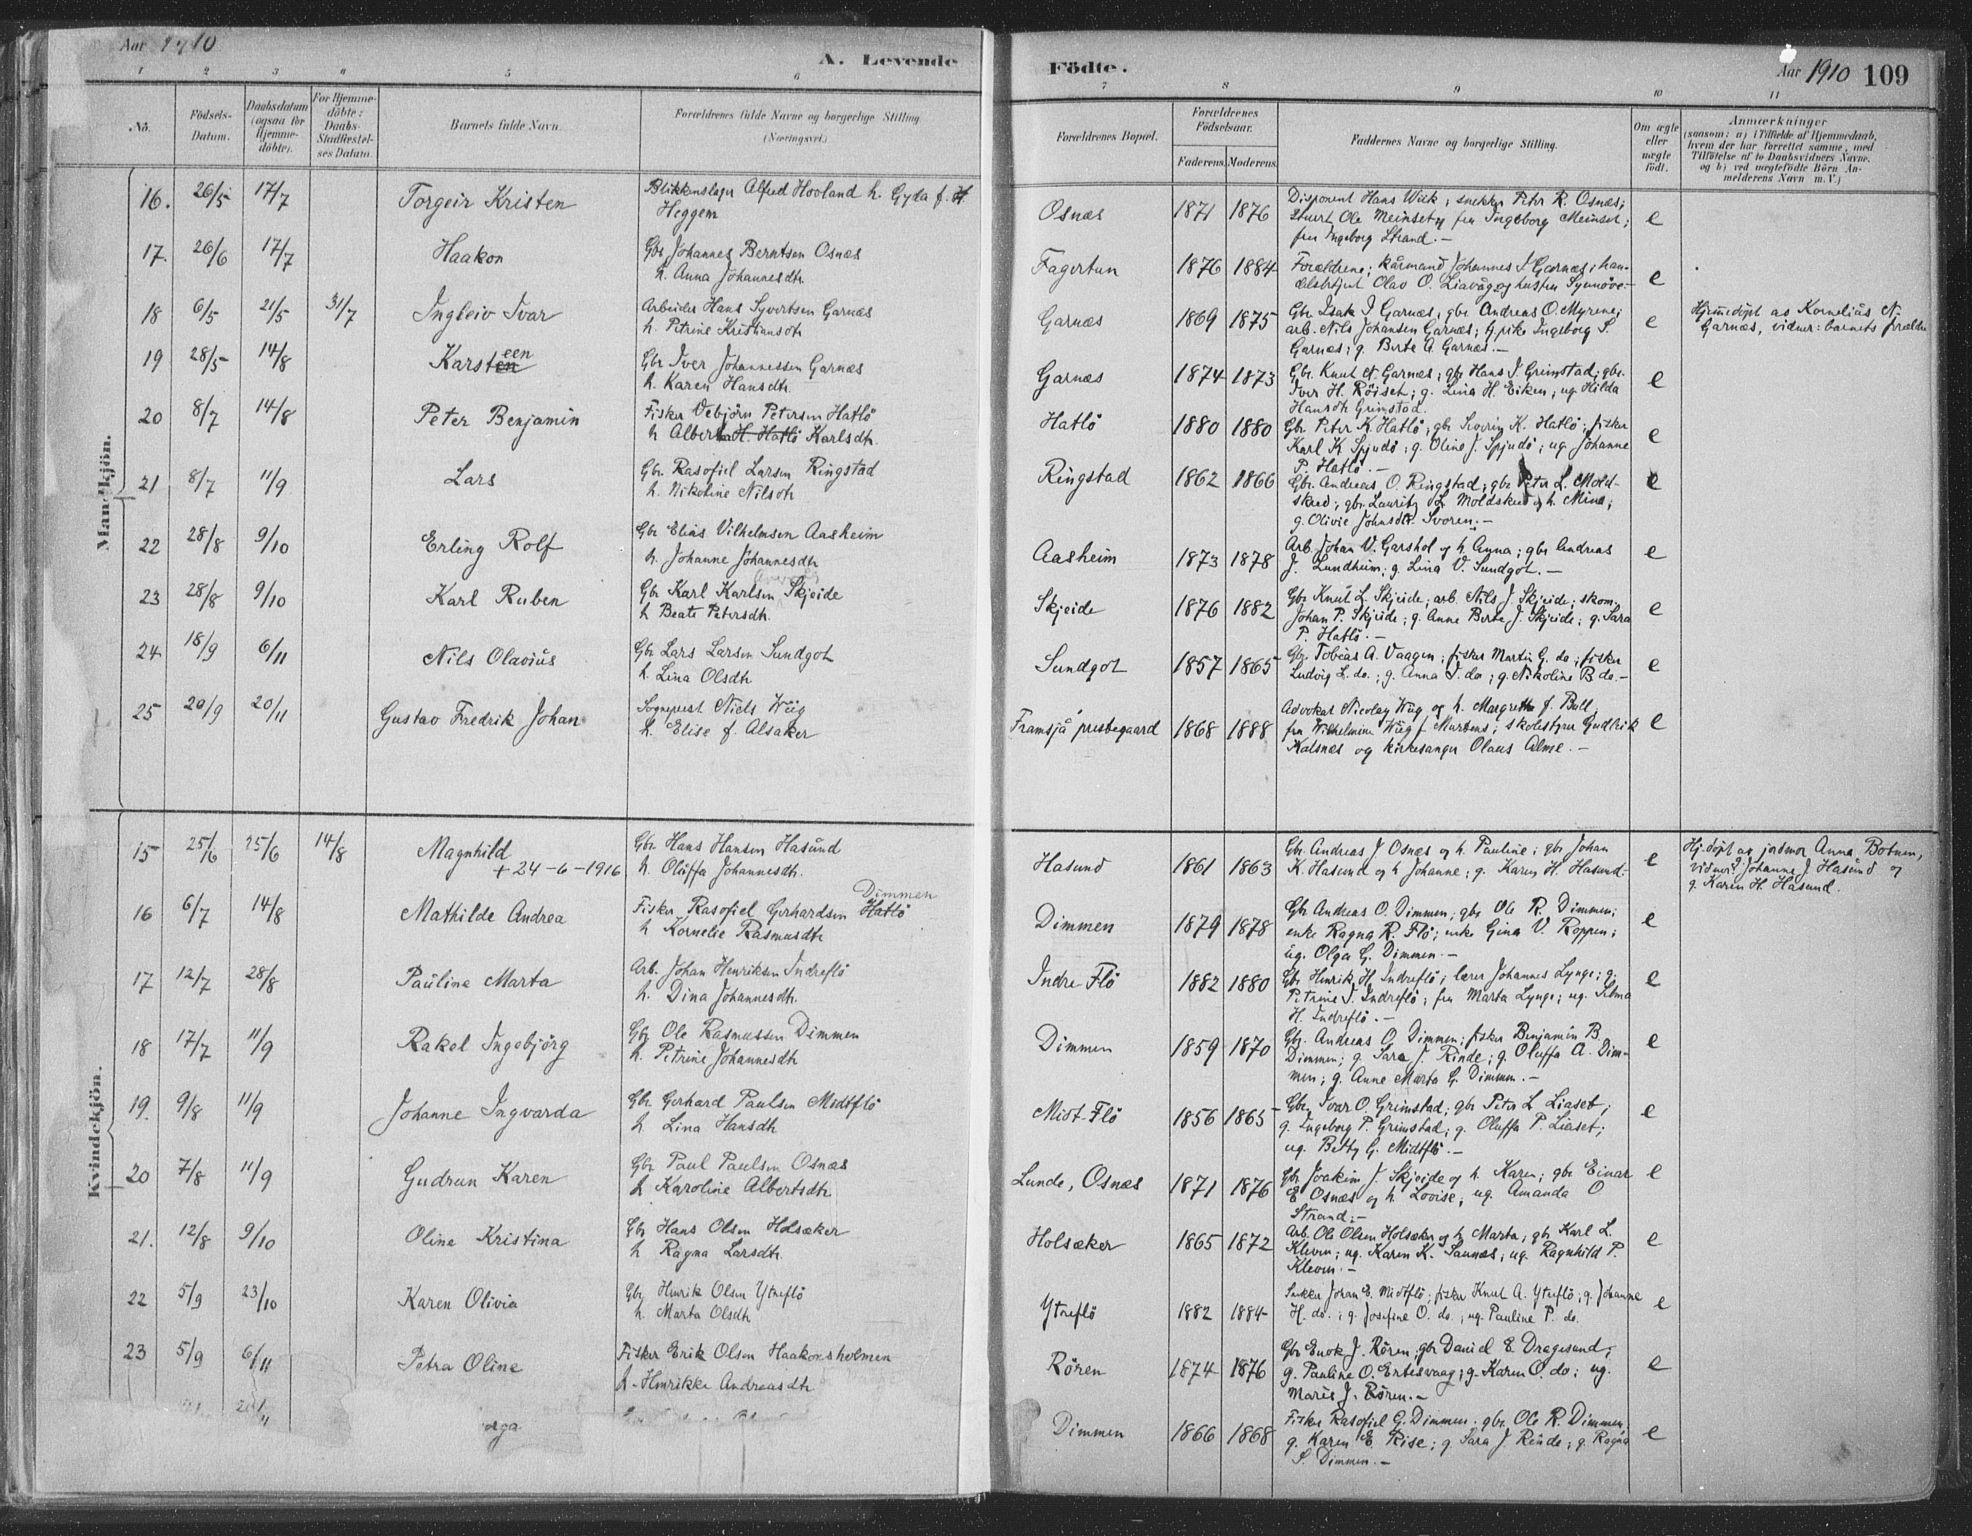 Aar 1910
A. Levende
Födte.
Aar 1910 109
1 2 3 4 5 6 7 8 9 10 11
No.
Födsels-
Datum.
Daabsdatum
(ogsaa for
Hjemme-
döbte).
For Hjemme-
döbte:
Daabs-
Stadfæstel-
ses Datum.
Barnets fulde Navn.
Forældrenes fulde Navne og borgerlige Stilling
(Næringsvei.)
Forældrenes Bopæl.
Forældrenes
Födselsaar.
Faderens. Moderens.
Faddernes Navne og borgerlige Stilling.
Om ægte
eller
uægte
födt.
Anmærkninger
(saasom: a) i Tilfælde af Hjemmedaab,
hvem der har forrettet samme, med
Tilföielse af to Daabsvidners Navne.
og b) ved uægtefödte Börn An-
melderens Navn m. V.)
Mandkjön.
16. 26/5 17/7 Torgeir Kristen
Blikkenslager Alfred Hovland h. Gyda f.
Heggem
Osnæs 1871 1876
Disponent Hans Wiik; snekker Peter R. Osnæs;
stuert Ole Meinset og fru Ingeborg Meinset;
fru Ingeborg Strand.- e
17. 26/6 17/7 Haakon
Gbr Johannes Berntsen Osnæs
h. Anna Johannesdtr
Fagertun 1876 1884
Forældrene; kårmand Johannes I Garnæs; han-
delsbetjent Olav O. Liavåg og hustru Synnöve.- e
18 6/5 21/5 31/7 Ingleiv Ivar
Arbeider Hans Syvertsen Garnæs
h. Petrine Kristiansdtr
Garnæs 1869 1875
Gbr Isak I Garnæs; gbr Andreas O. Myrene;
arb. Nils Johansen Garnæs; pike Ingeborg S.
Garnæs; g. Berte A. Garnæs.- e
Hjemmedöpt av Kornelius N.
Garnæs, vidner: barnets foreldre
19 28/5 14/8 Karsteen
Gbr Iver Johannessen Garnæs
h. Karen Hansdtr
Garnæs 1874 1873
Gbr. Knut A. Garnæs; gbr Hans I Grimstad; gbr.
Iver H. Röiset; g. Lina H. Eiken; ug. Hilda
Hansdtr Grimstad. e
20 8/7 14/8 Peter Benjamin
Fisker Vebjörn Petersen Hatlö
h Alberta H. Hatlö Karlsdtr.
Hatlö 1880 1880
Gbr Peter K. Hatlö; gbr Severin K. Hatlö; fisker
Karl K Spjudö; g. Oline J. Spjudö; ug. Johanne
P. Hatlö.- e
21 8/7 11/9 Lars
Gbr. Rasofiel Larsen Ringstad
h. Nikoline Nilsdtr
Ringstad 1862 1866
Gbr. Andreas O. Ringstad; gbr Peter L. Mold-
skred; gbr. Lauritz L. Moldskred og h. Mina;
g. Olivie Johnsdtr. Svoren.- e
22 28/8 9/10 Erling Rolf
Gbr Elias Vilhelmsen Aasheim
h. Johanne Johannesdtr
Aasheim 1873 1878
Arb. Johan V. Garshol og h Anna; gbr Andreas
J. Lundheim; g. Lina V. Sundgot.- e
23 28/8 9/10 Karl Ruben
Gbr Karl Karlsen Skjeide
h Beate Petersdtr.
Skjeide 1876 1882
Gbr Knut L. Skjeide; arb. Nils J Skjeide; skom.
Johan P. Skjeide; g. Anne Berte J. Skjeide; g. Sara
P. Hatlö.- e
24 18/9 6/11 Nils Olavius
Gbr Lars Larsen Sundgot
h. Lina Olsdtr
Sundgot 1857 1865
Gbr. Tobias A. Vaagen; fisker Martin G. do; fisker
Ludvig L. do.; g. Anna I. do; g. Nikoline B do.- e
25 20/9 20/11 Gustav Fredrik Johan
Sogneprest Niels Wiig
h. Elise f. Alsaker
Framsjå prestegaard 1868 1888
Advokat Nicolay Wiig og h. Margrethe f. Bull
fru Wilhelmine Wiig f Martens; skolestyrer Gudleik
Kalsnæs og kirkesanger Olaus Alme.- e
Kvindekjön.
15 25/6 25/6 14/8 Magnhild
+ 24-6-1916
Gbr Hans Hansen Hasund
h. Oluffa Johannesdtr.
Hasund 1861 1863
Gbr. Andreas J Osnæs og h. Pauline; gbr. Johan
K. Hasund og h Johanne; g. Karen H. Hasund.- e
Hj.döpt av jordmor Anna Botnen,
vidner: Johanne J. Hasund og
g. Karen H. Hasund.
16 6/7 14/8 Mathilde Andrea
Dimmen
Fisker Rasofiel Gerhardsen Hatlö
h Kornelie Rasmusdtr
Dimmen 1879 1878
Gbr. Andreas O. Dimmen; gbr Ole R. Dimmen;
enke Ragna R. Flö; enke Gina V. Roppen;
ug. Olga G. Dimmen.- e
17 12/7 28/8 Pauline Marta
Arb. Johan Henriksen Indreflö
h. Dina Johannesdtr.
Indre Flö 1882 1880
Gbr. Henrik H. Indreflö; lærer Johannes Lynge; g.
Petrine I. Indreflö; fru Marta Lynge; ug. Selma
H. Indreflö.- e
18 17/7 11/9 Rakel Ingebjörg
Gbr Ole Rasmussen Dimmen
h. Petrine Johannesdtr
Dimmen 1859 1870
Gbr. Andreas O. Dimmen; fisker Benjamin B.
Dimmen; g. Sara J. Rinde; g. Oluffa A. Dim-
men; g. Anne Marta G. Dimmen.- e
19. 9/8 11/9 Johanne Ingvarda
Gbr Gerhard Paulsen Midtflö
h. Lina Hansdtr
Midt-Flö 1856 1865
Gbr. Ivar O. Grimstad; gbr Peter L Liaset;
g. Ingeborg P. Grimstad; g. Oluffa P. Liaset;
ug. Betty G. Midtflö.- e
20 7/8 11/9 Gudrun Karen
Gbr Paul Paulsen Osnæs
h Karoline Albertsdtr
Lunde, Osnæs 1871 1876
Gbr Joakim J. Skjeide og h. Karen; gbr Einar
E Osnæs og h. Lovise; ug. Amanda O
Strand.- e
21. 12/8 9/10 Oline Kristina
Gbr Hans Olsen Holsæker
h Ragna Larsdtr.
Holsæker 1865 1872
Arb. Ole Olsen Holsæker og h Marta; gbr Karl L.
Kleven; ug. Karen K. Saunæs; ug. Ragnhild P.
Kleven.- e
22 5/9 23/10 Karen Olivia
Gbr Henrik Olsen Ytreflö
h. Marta Olsdtr
Ytreflö 1882 1884
Snikker Johan E. Midtflö; fisker Knut A. Ytreflö; g. Johanne
H. do.; g. Josefine O. do.; ug. Pauline P. do. e
23 5/9 6/11 Petra Oline
Fisker Erik Olsen Haakonsholmen
h. Henrikke Andreasdtr
Rören 1874 1876
Gbr Enok J. Rören; gbr Daniel E. Dragesund;
g. Pauline O. Ertesvaag; g. Karen O. do; ug.
Marie J. Rören.- e
ga
Dimmen 1866 1868
Fisker Rasofiel G. Dimmen; gbr. Ole R. Dimmen;
g. Karen E. Rise; g. Sara J Rinde; g. Ragna
S. Dimmen.- e